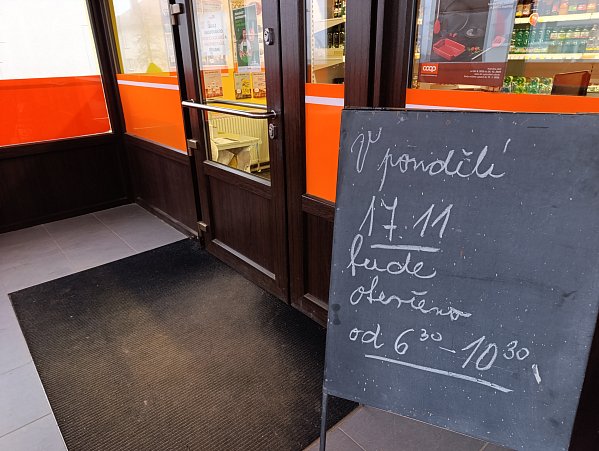 coop
V pondělí
17.11
bude
otevřeno
od 6³⁰ - 10³⁰